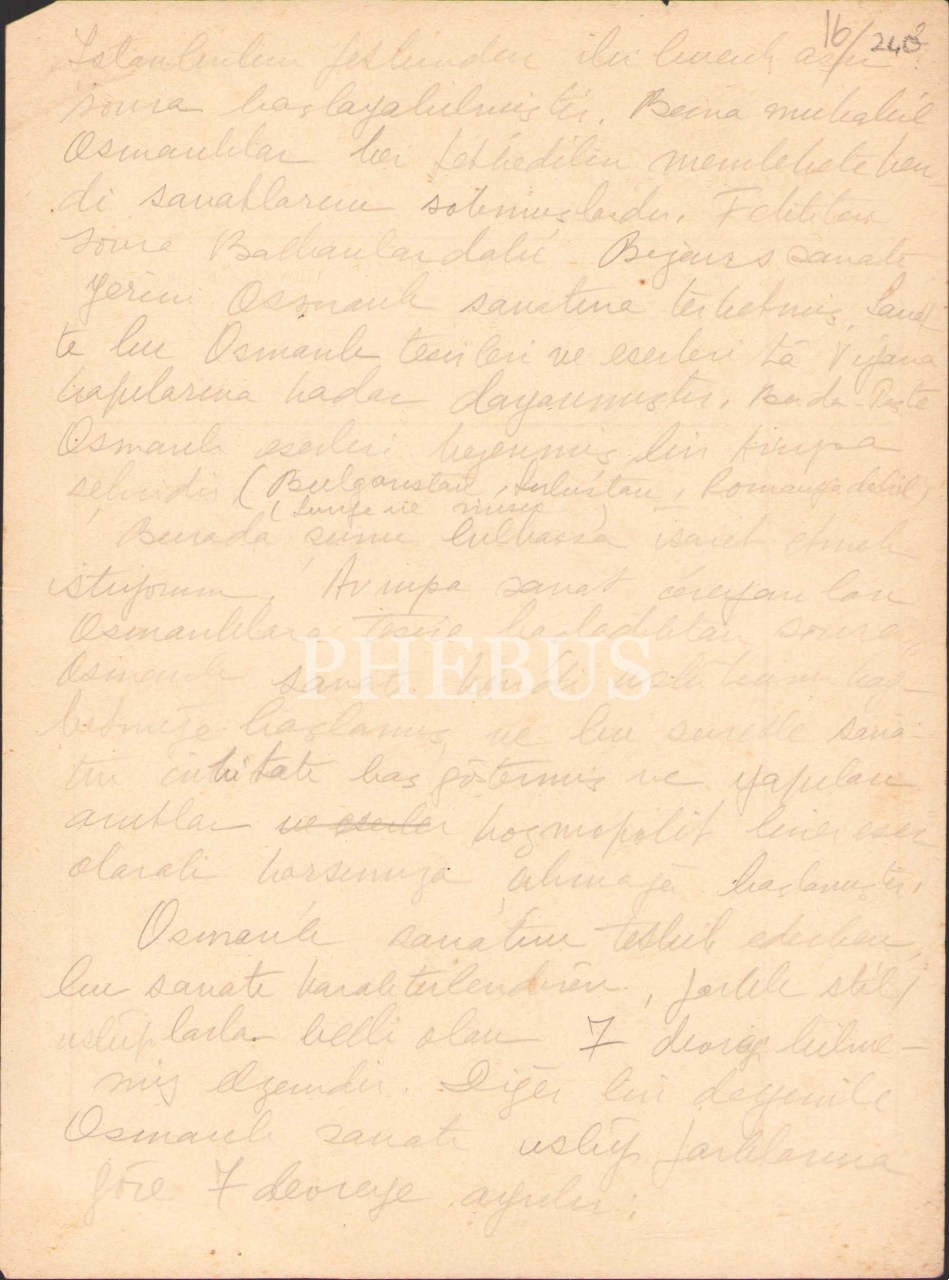 16/248
İstanbulun fethinden iki buçuk asır
sonra başlayabilmiştir. Buna mukabil
Osmanlılar her fethedilen memlekete ken-
di sanatlarını sokmuşlardır. Fetihten
sonra Balkanlardaki Bizans sanatı
yerini Osmanlı sanatına terketmiş, Sanat-
te bu Osmanlı tesirleri ve eserleri tâ Viyana
kapılarına kadar dayanmıştır. Buda-Peşte
Osmanlı eserleri bezenmiş bir Avrupa
şehridir (Bulgaristan, Sırbistan, Romanyadaki
Burada şunu bilhassa işaret etmek
istiyorum. Avrupa sanat cereyanları
Osmanlılara tesire başladıktan sonra,
Osmanlı sanatı kendi üslûbunu kay-
betmeğe başlamış ve bu suretle sana-
tın inhitatı baş göstermiş ve yapılan
anıtlar ve eserler kozmopolit birer eser
olarak karşımıza çıkmağa başlamıştır.
Osmanlı sanatını teşkil ederken,
bu sanatı karakterlendiren, farklı stil/
üslûplarla belli olan 7 devre bilme-
miz elzemdir. Diğer bir deyimle
Osmanlı sanatı uslûp farklarına
göre 7 devreye ayrılır:
PHEBUS